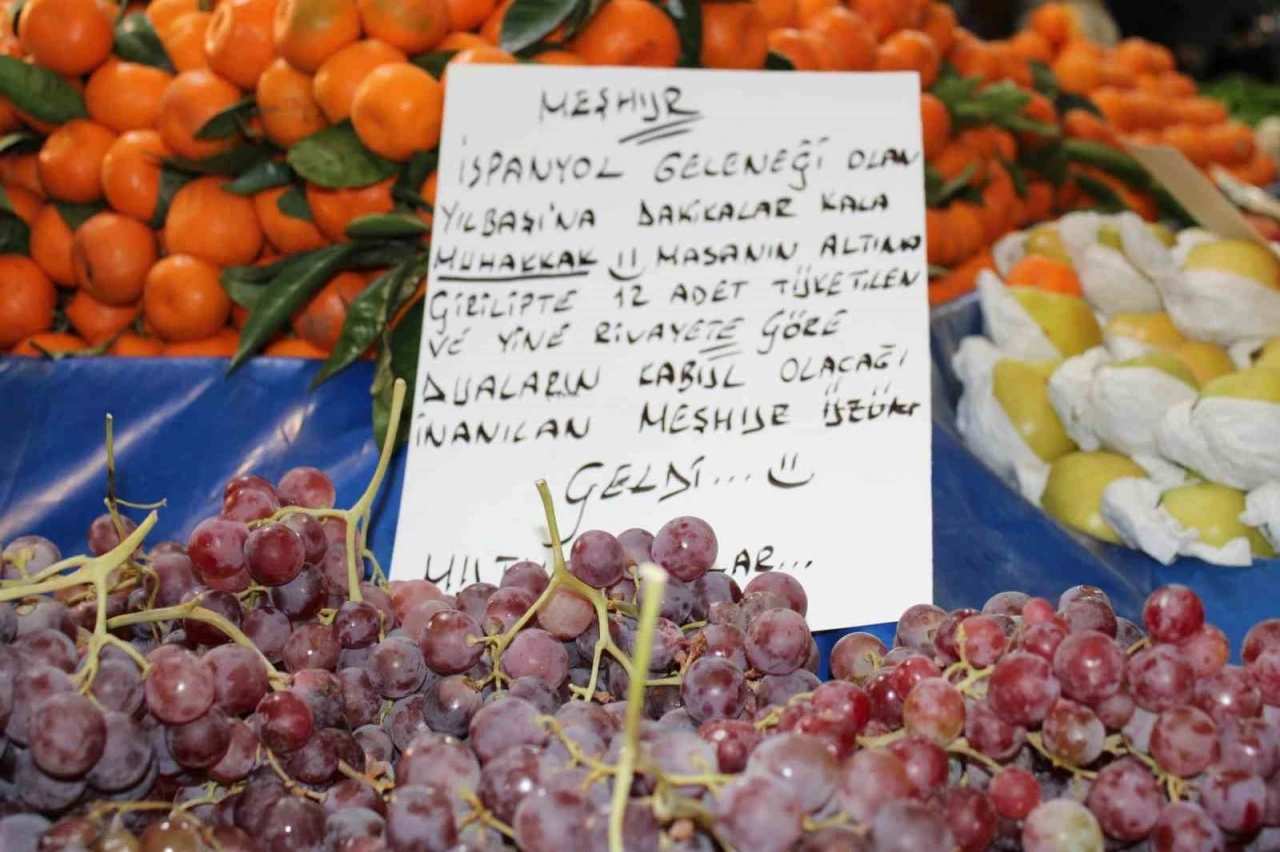 MEŞHUR
İSPANYOL GELENEĞİ OLAN
YILBAŞI'NA DAKİKALAR KALA
MUHAKKAK MASANIN ALTINA
GİRİLİPTE 12 ADET TÜKETİLEN
VE YİNE RİVAYETE GÖRE
DUALARIN KABUL OLACAĞI
İNANILAN MEŞHUR ÜZÜM
GELDİ...